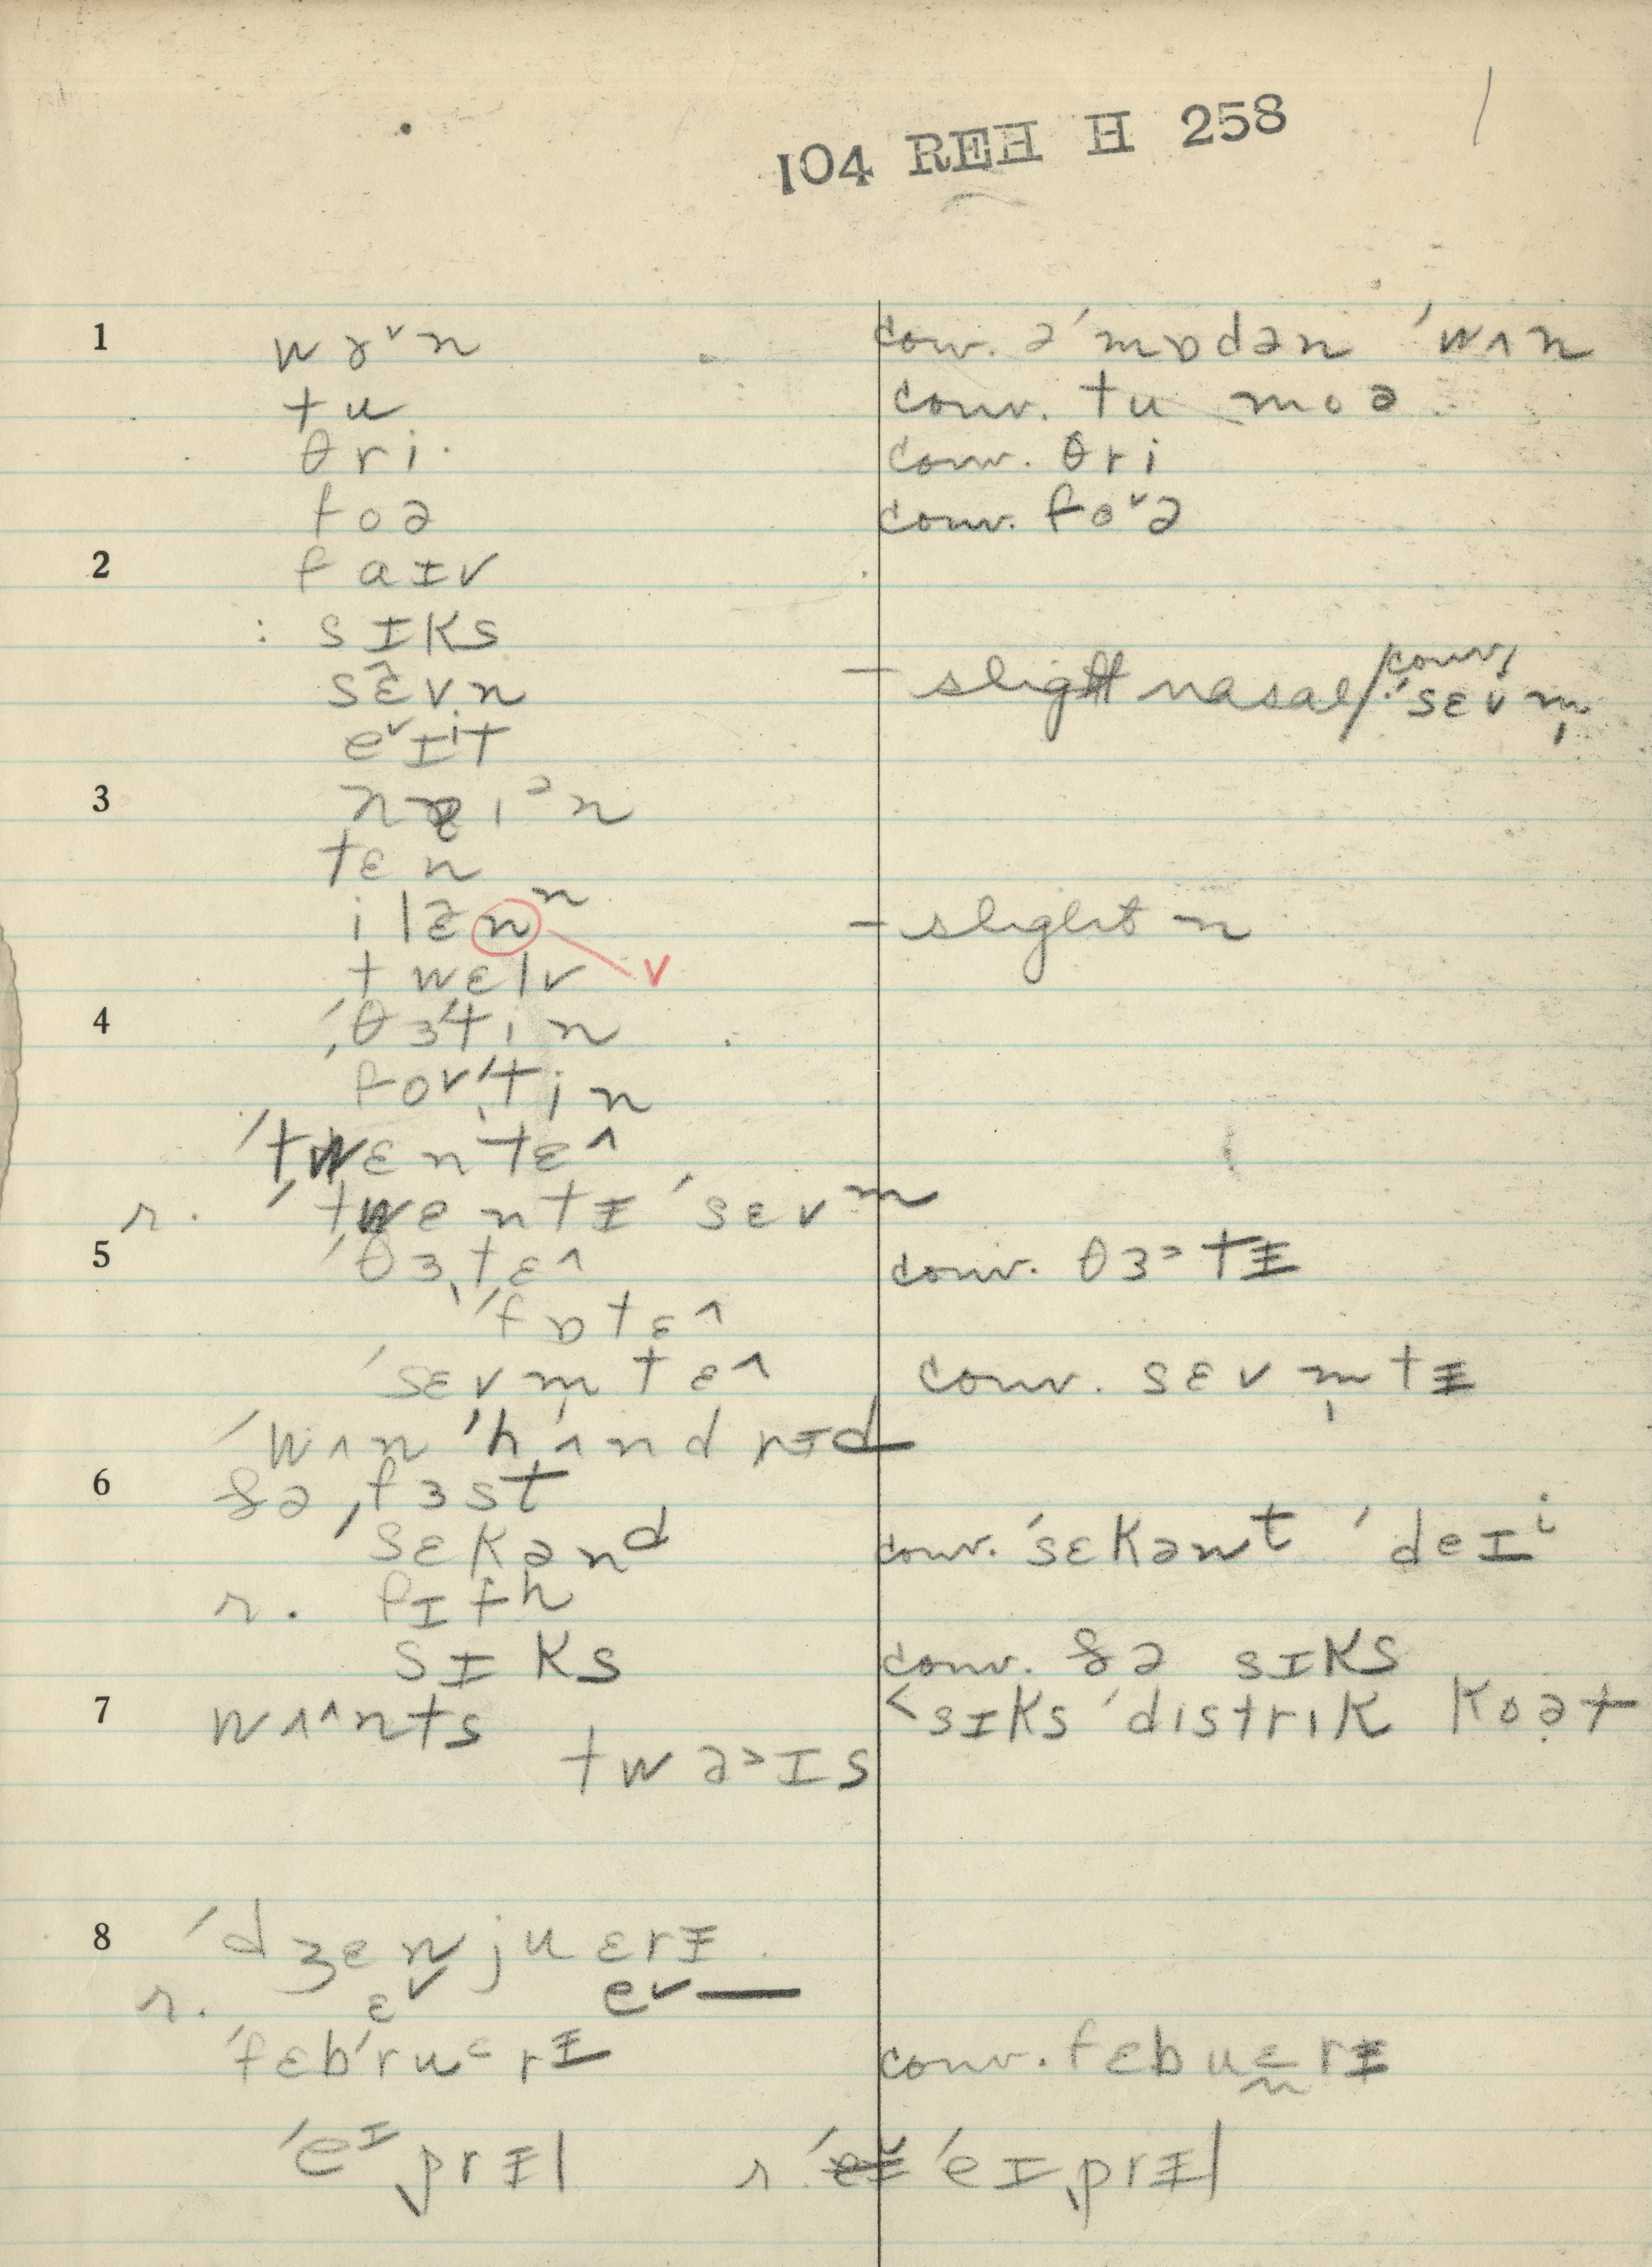 104 REH H 258 /
1 wɤ˅n conv. ə ˈmɒdən ˈwʌn
tu conv. tu moə
θri conv. θri
foə conv. fo˅ə
2 faɪv
: sɪks
sɛ̃vn – slight nasal / conv. ˈsɛvm̩
e˅ɪⁱt
3 n ɪᵊn
tɛn
ilə̃nⁿ – slight n
twɛlv v
4 ˈθɜˈtin
forˈtin
ˈtwɛntɛ^
r. ˈtwentɪ ˈsɛvᵐ
5 ˈθɜ̩tɛ^ conv. θɜ˃tᵻ
ˈfɒtɛ^
ˈsɛvm̩tɛ^ conv. sɛvm̩tᵻ
ˈwʌn ˈhʌndrɪd
6 ðə ˌfɜst
ˈsɛkənᵈ conv. ˈsɛkənᵗ ˈdeɪⁱ
r. fɪfh
sɪks conv. ðə sɪks
7 wʌ^nts <sɪks ˈdistrik koət
twə˃ɪs
8 ˈdʒenjuɛrᵻ
r. ɛ˅ e˅—
ˈfɛbˈruᵋrᵻ conv. fɛbuɛrᵻ
ˈeᶦˌprᵻl r. ˈeɪˌprᵻl